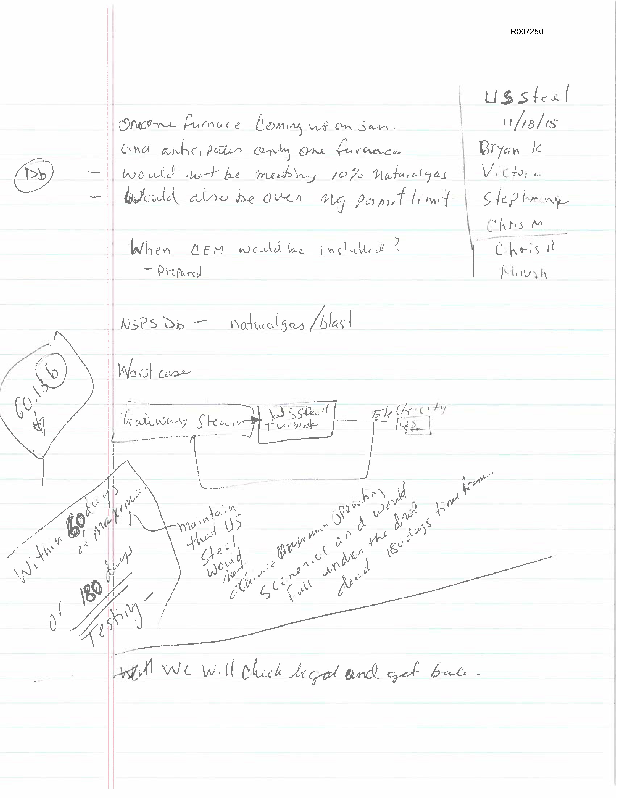 R007250
US Steel
11/18/15
Bryan K
Victoria
Stephanie
Chris M
Chris R
furnace Coming up on Jan.
and anticipates only one furnace
Db - would not be meeting 10% Natural gas
- Would also be over ng permit limit
When CEM would be installed?
- Prepared
NSPS Db - natural gas/blast
Worst case
60.13b
Gateway Steam
US Steel
Turbine
Electricity
Within 60 days
or 180 days
Testing -
maintain
that US
Steel
would
Maximum Operating
Scenario and would
fall under the
180 days time frame
We will check legal and get back.